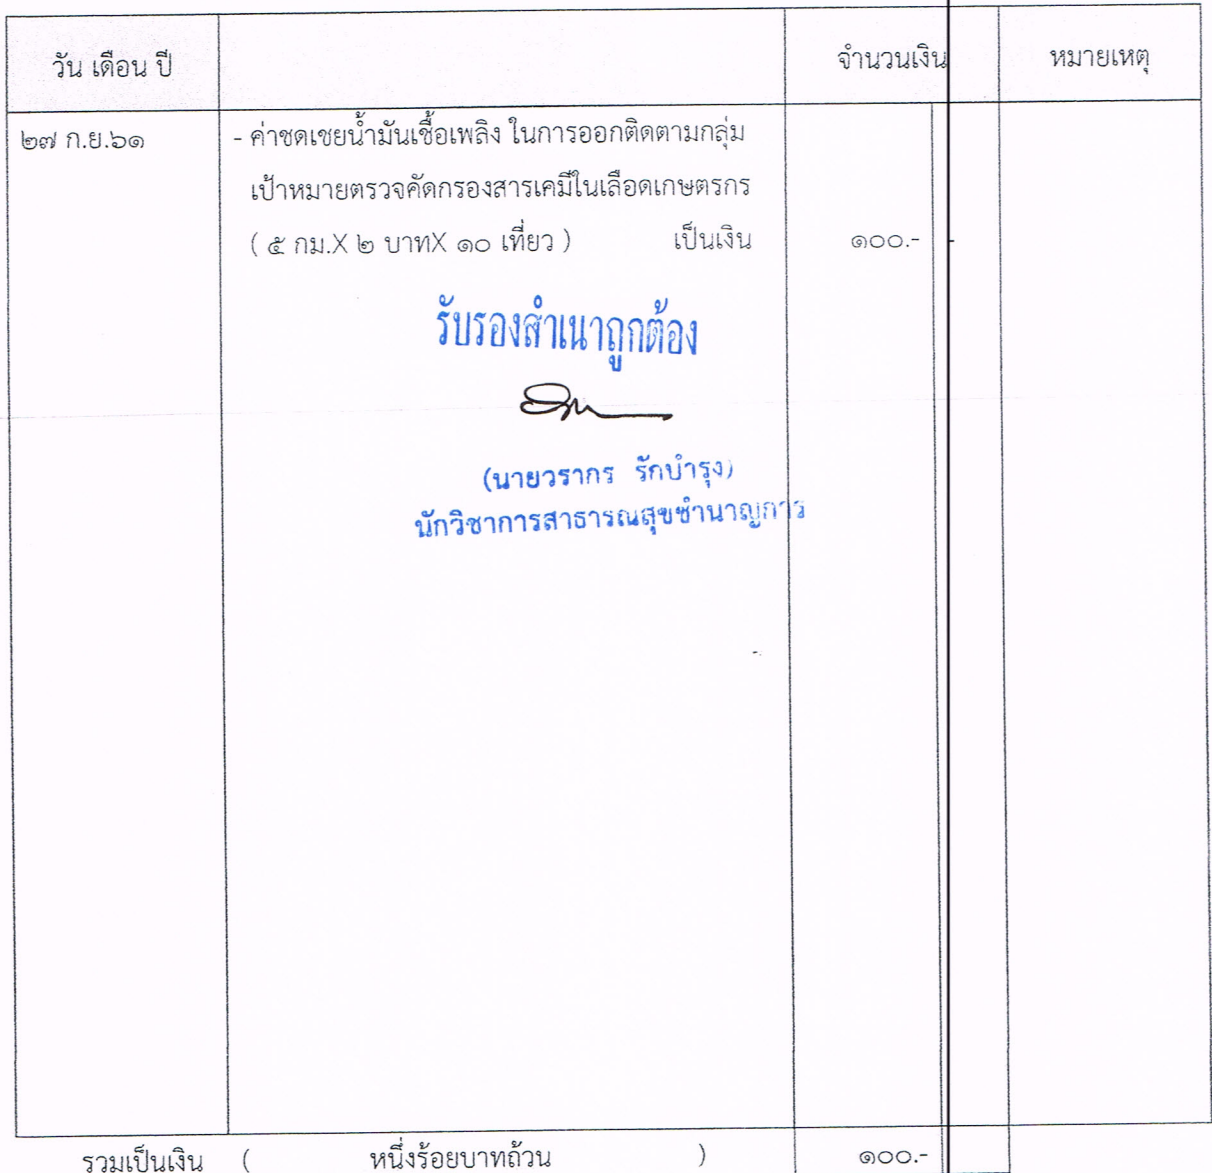 วัน เดือน ปี จำนวนเงิน หมายเหตุ
๒๗ ก.ย.๖๑ - ค่าชดเชยน้ำมันเชื้อเพลิง ในการออกติดตามกลุ่ม
เป้าหมายตรวจคัดกรองสารเคมีในเลือดเกษตรกร
( ๕ กม.X ๒ บาทX ๑๐ เที่ยว ) เป็นเงิน ๑๐๐.- -
รับรองสำเนาถูกต้อง
(นายวรากร รักบำรุง)
นักวิชาการสาธารณสุขชำนาญการ
รวมเป็นเงิน ( หนึ่งร้อยบาทถ้วน ) ๑๐๐.-